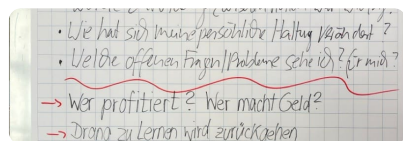 • Wie hat sich meine persönliche Haltung verändert?
• Welche offenen Fragen/Probleme sehe ich? für mich?
→ Wer profitiert? Wer macht Geld?
→ Drang zu Lernen wird zurückgehen